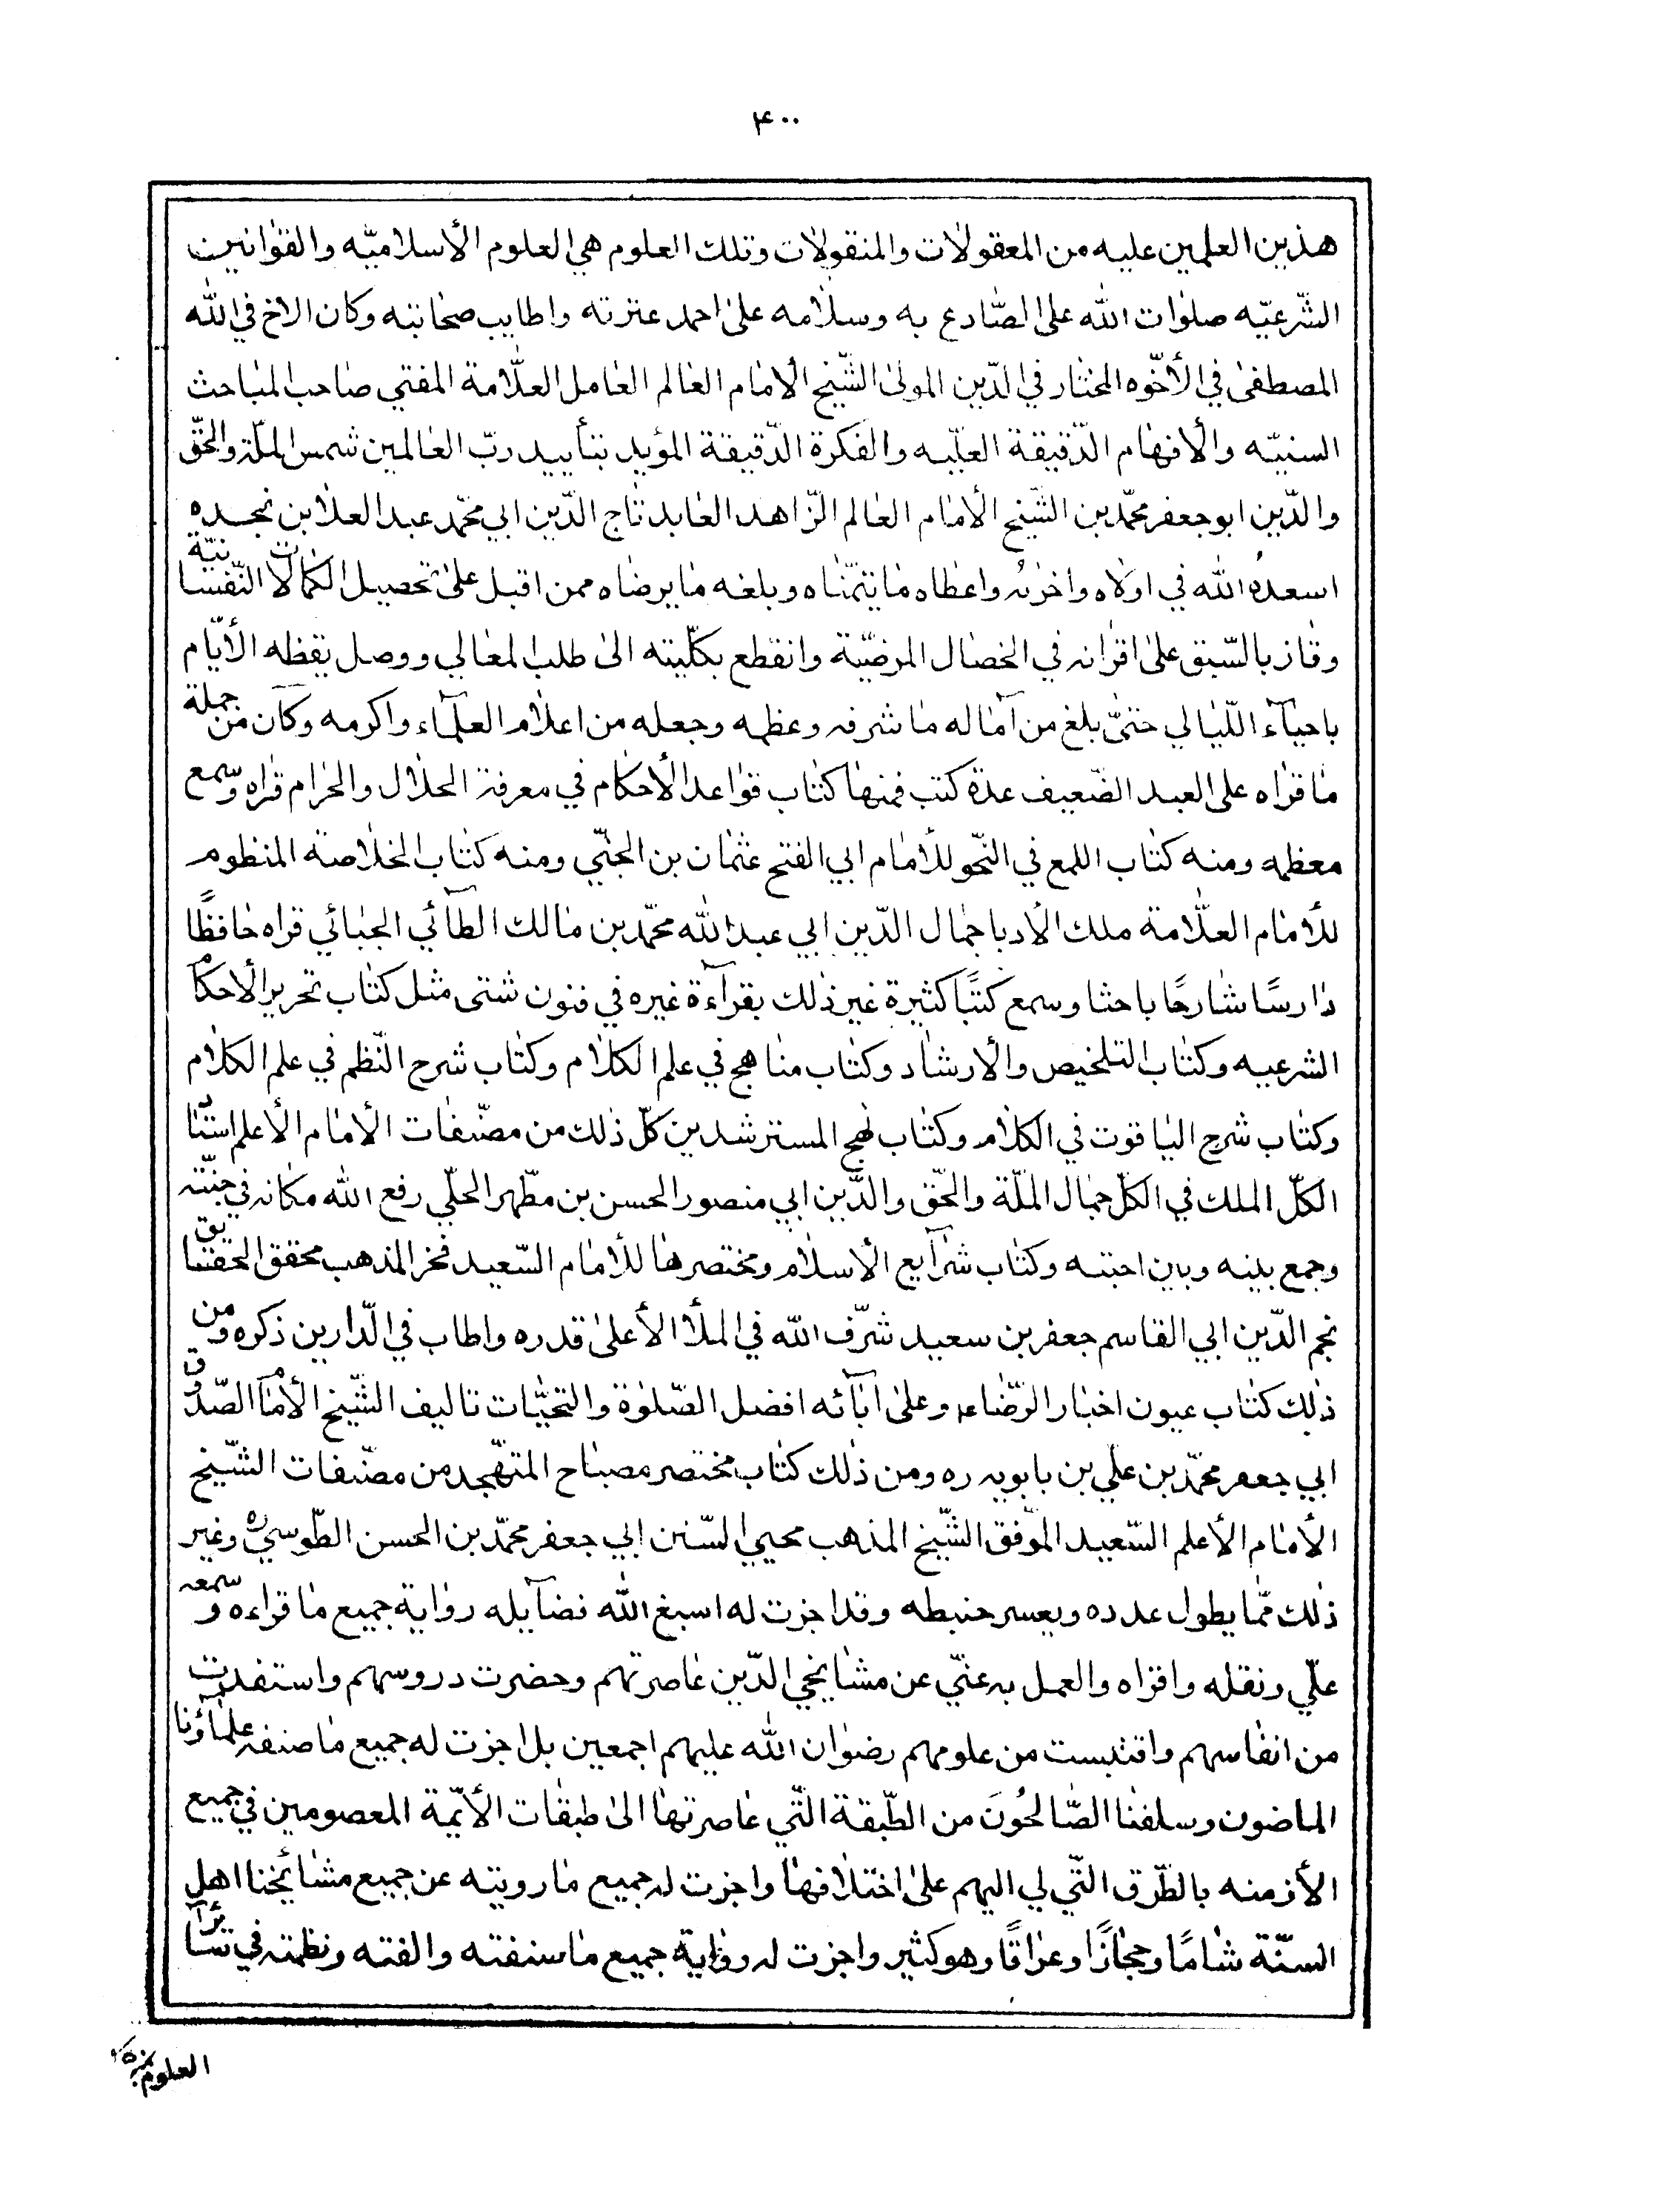 ۴۰۰
هذين العلمين عليه من المعقولات والمنقولات وتلك العلوم هي العلوم الأسلاميّه والقوانين
الشّرعيّه صلوات الله على الصّادع به وسلامه على احمد عترته واطايب صحابته وكان الاخ في الله
المصطفى في الأخّوه المختار في الدّين المولى الشّيخ الأمام العالم العامل العلّامة المفتي صاحب المباحث
السنيّه والأفهام الدّقيقة العليّه والفكرة الدّقيقة المؤيد بتأييد ربّ العالمين شمس الملّة والحقّ
والدّين ابو جعفر محمّد بن الشّيخ الأمام العالم الزّاهد العابد تاج الدّين ابي محمّد عبد العلا بن نجده
اسعده الله في اولاه واخرته واعطاه ما يتمنّاه وبلغه ما يرضاه ممن اقبل على تحصيل الكمالات النّفسانيّة
وفاز بالسّبق على اقرانه في الخصال المرضيّة وانقطع بكلّيته الى طلب المعالي ووصل يقظه الأيّام
باحياء اللّيالي حتّى بلغ من آماله ما شرفه وعظمه وجعله من اعلام العلماء واكرمه وكان من جملة
ما قراه على العبد الضّعيف عدة كتب فمنها كتاب قواعد الأحكام في معرفة الحلال والحرام قراه وسمع
معظمه ومنه كتاب اللمع في النّحو للأمام ابي الفتح عثمان بن الجنّي ومنه كتاب الخلاصة المنظوم
للأمام العلّامة ملك الأدبا جمال الدّين ابي عبد الله محمّد بن مالك الطائي الجبائي قراه حافظًا
دارسًا شارحًا باحثا وسمع كتبًا كثيرة غير ذلك بقرآءة غيره في فنون شتى مثل كتاب تحرير الأحكام
الشرعيه وكتاب التلخيص والأرشاد وكتاب مناهج في علم الكلام وكتاب شرح النّظم في علم الكلام
وكتاب شرح الياقوت في الكلام وكتاب نهج المسترشدين كلّ ذلك من مصنّفات الأمام الأعلم استاد
الكلّ الملك في الكلّ جمال الملّة والحقّ والدّين ابي منصور الحسن بن مطّهر الحلّي رفع الله مكانه في جنّته
وجمع بينه وبين احبته وكتاب شرآيع الأسلام ومختصرها للأمام السّعيد فخر المذهب محقق الحقايق
نجم الدّين ابي القاسم جعفر بن سعيد شرّف الله في الملأ الأعلى قدره واطاب في الدّارين ذكره ومن
ذلك كتاب عيون اخبار الرّضاء وعلى آبآئه افضل الصّلوة والتحيّات تاليف الشّيخ الأمام الصّدوق
ابي جعفر محمّد بن علّي بن بابويه ره ومن ذلك كتاب مختصر مصباح المتهّجد من مصنّفات الشّيخ
الأمام الأعلم السّعيد الموّفق الشّيخ المذهب محيي السّنن ابي جعفر محمّد بن الحسن الطّوسي ره وغير
ذلك ممّا يطول عدده ويعسر ضبطه وقد اجزت له اسبغ الله فضآيله رواية جميع ما قراءه وسمعه
علّي ونقله واقراه والعمل به عنّي عن مشايخي الدّين عاصرتهم وحضرت دروسهم واستفدت
من انفاسهم واقتبست من علومهم رضوان الله عليهم اجمعين بل اجزت له جميع ما صنفه علماؤنا
الماضون وسلفنا الصّالحُونَ من الطّبقة الّتي عاصرتها الى طبقات الأيّمة المعصومين في جميع
الأزمنه بالطّرق الّتي لي اليهم على اختلافها واجزت له جميع ما رويته عن جميع مشائخنا اهل
السنّة شامًا وحجازًا وعراقًا وهو كثير واجزت له رواية جميع ما سنفته والفته ونظمته في سائر
العلوم